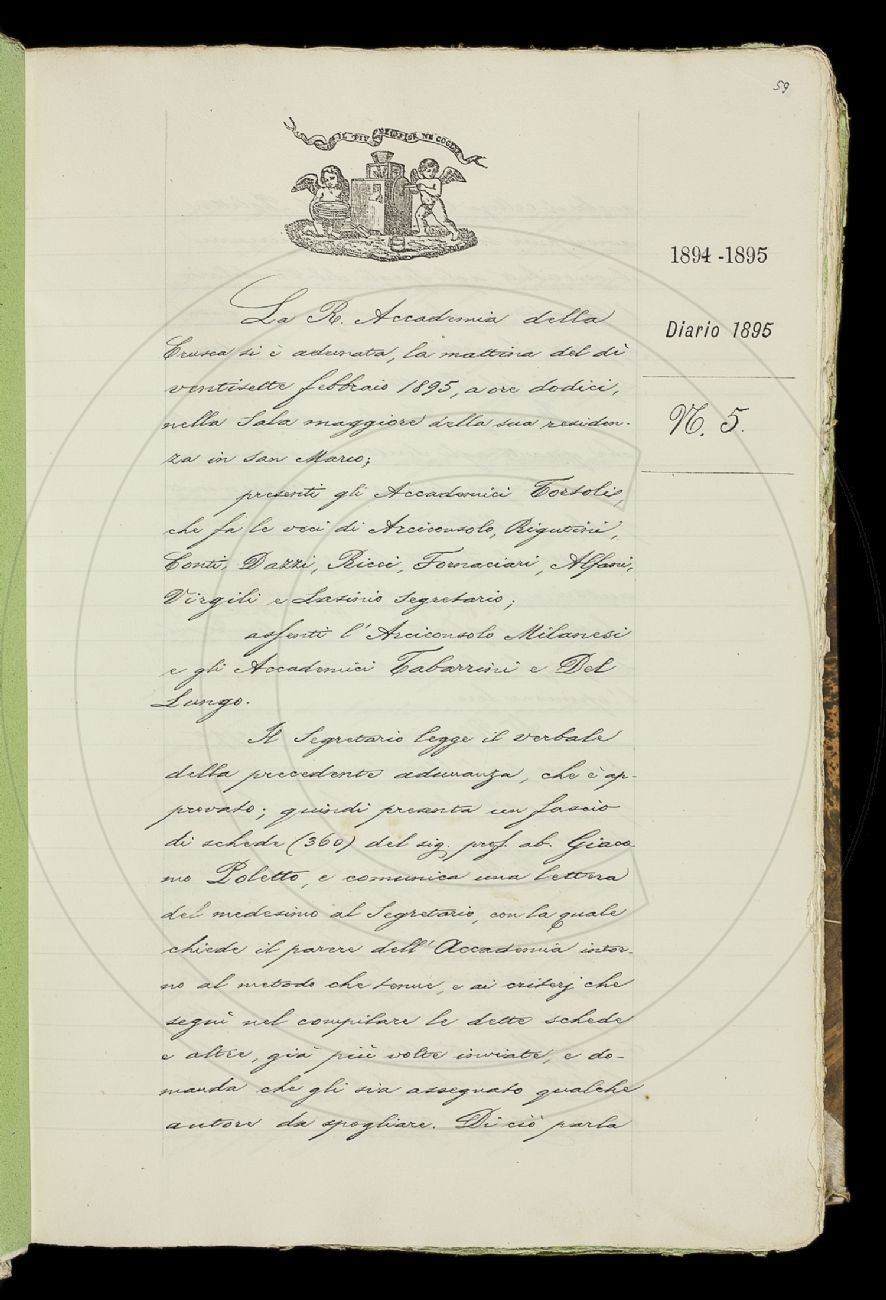 59
IL PIÙ BEL FIOR NE COGLIE
1894-1895
Diario 1895
N. 5.
La R. Accademia della
Crusca si è adunata, la mattina del dì
ventisette febbraio 1895, a ore dodici,
nella Sala maggiore della sua residen-
za in San Marco;
presenti gli Accademici Tortoli
che fa le veci di Arciconsolo, Rigutini,
Conti, Dazzi, Ricci, Fornaciari, Alfani,
Virgili e Lasinio Segretario;
assenti l'Arciconsolo Milanesi
e gli Accademici Tabarrini e Del
Lungo.
Il Segretario legge il verbale
della precedente adunanza, che è ap-
provato; quindi presenta un fascio
di schede (360) del sig. prof. ab. Giaco
mo Poletto, e comunica una lettera
del medesimo al Segretario, con la quale
chiede il parere dell'Accademia intor-
no al metodo che tenne, e ai criterj che
seguì nel compilare le dette schede
e altre, già più volte inviate, e do-
manda che gli sia assegnato qualche
autore da spogliare. Di ciò parla